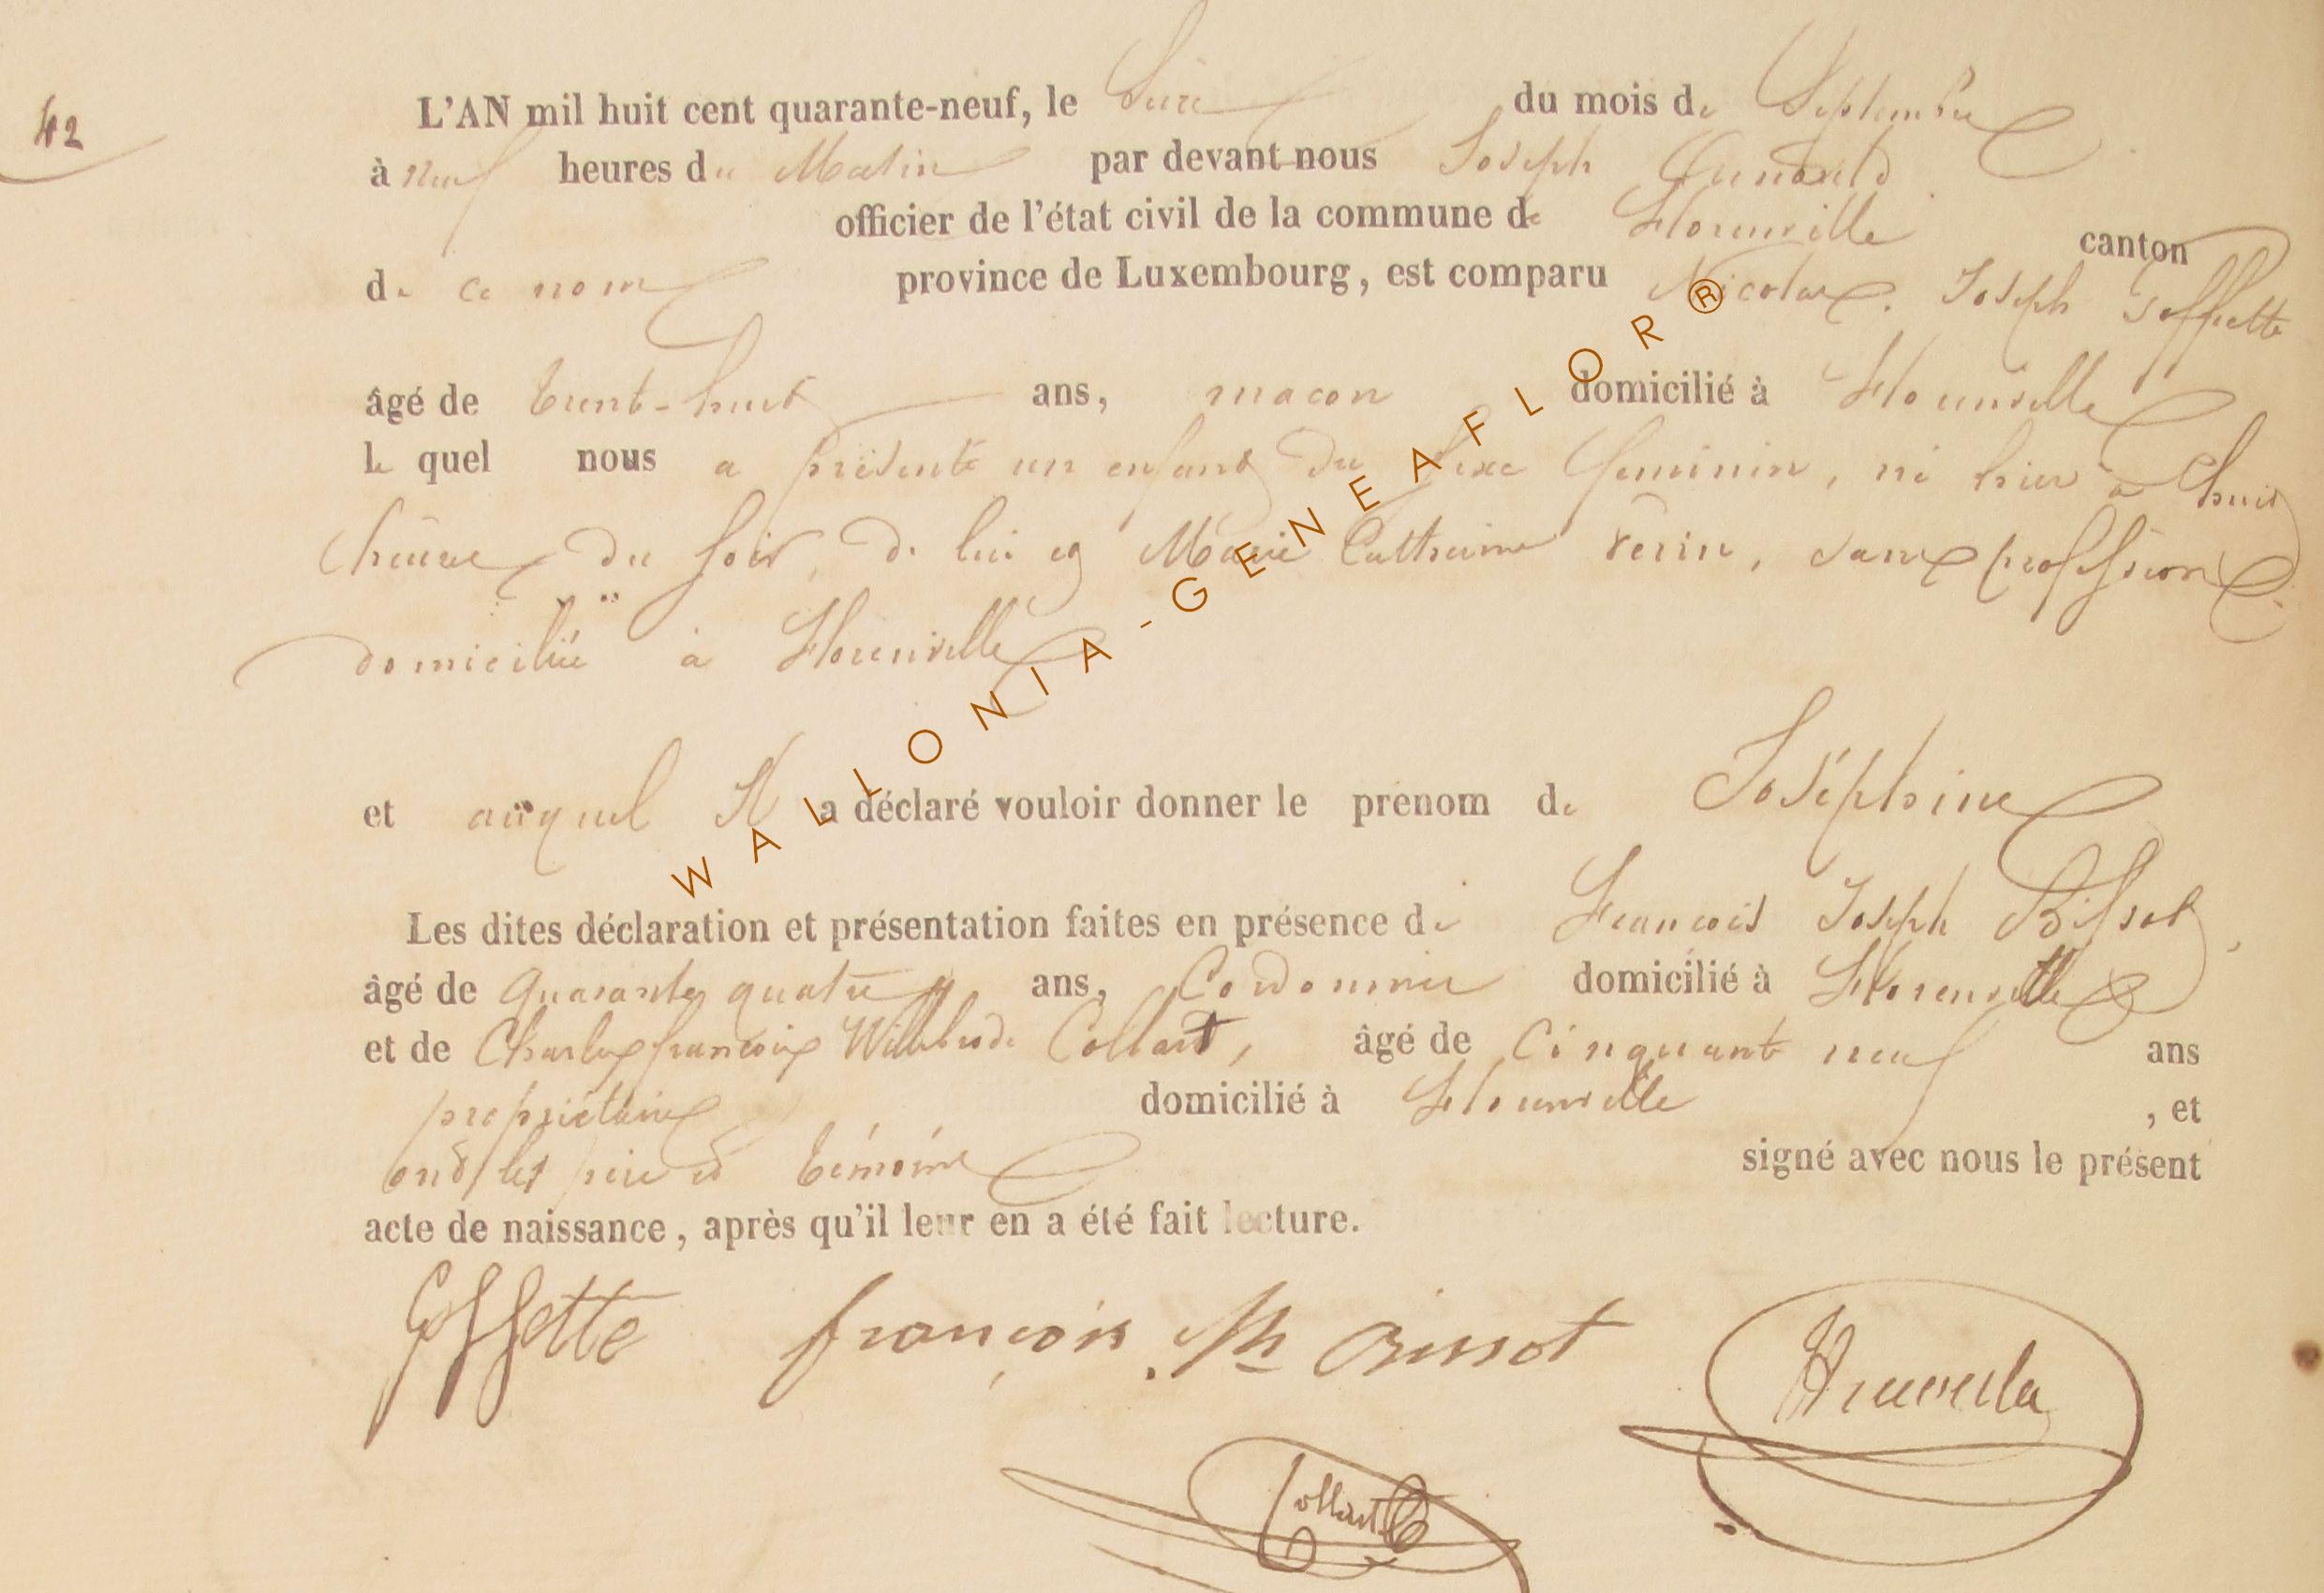 42
L'AN mil huit cent quarante-neuf, le du mois de Septembre
à neuf heures du Matin par devant nous Joseph
officier de l'état civil de la commune de Florenville canton
de ce nom province de Luxembourg, est comparu Nicolas Joseph Goffette
âgé de trente-huit ans, macon domicilié à Florenville
le quel nous a présenté un enfant du sexe feminin, né hier à huit
heures du soir, de lui et Marie Catherine Perin, sans profession
domiciliée à Florenville
et auquel Il a déclaré vouloir donner le prénom de Joséphine
Les dites déclaration et présentation faites en présence de Francois Joseph Bissot,
âgé de quarante quatre ans, Cordonnier domicilié à Florenville
et de Charles francois Willebrode Collart, âgé de Cinquante neuf ans
propriétaire domicilié à Florenville, et
ont les père et témoins signé avec nous le présent
acte de naissance, après qu'il leur en a été fait lecture.
Goffette françois Jph Bissot
Collart
WALLONIA-GENEAFLOR®